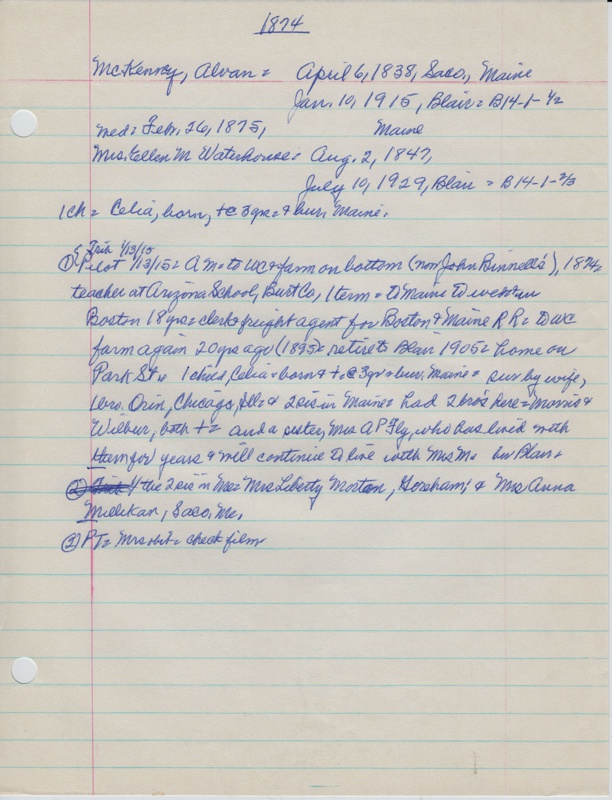 1874
McKenney, Alvan = April 6, 1838, Saco, Maine
Jan. 10, 1915, Blair = B14-1-1/2
med = Feb. 26, 1875, Maine
Mrs. Ellen M Waterhouse = Aug. 2, 1847,
July 10, 1929, Blair = B14-1-2/3
1 ch = Celia, born, + @ 3 yrs = + bur. Maine.
Trib 1/13/15
① Pilot 1/13/15 = A M = to WC + farm on bottom (now John Binnell's), 1874 =
teacher at Arizona School, Burt Co, 1 term = to Maine to
Boston 18 yrs = clerk + freight agent for Boston + Maine RR = to WC
farm again 20 yrs ago (1895) = retire to Blair 1905 = home on
Park St = 1 child, Celia = born + + @ 3 yr = bur. Maine = sur by wife,
1 bro. Orin, Chicago, Ill = + 2 sis in Maine = had 2 bros here = Morris +
Wilbur, both + = and a sister, Mrs A P Fly, who has lived with
them for years + will continue to live with Mrs Mc in Blair =
② the 2 sis in Me = Mrs Liberty Morton, Goreham, + Mrs Anna
Millikan, Saco, Me,
③ PT = Mrs obit = check film